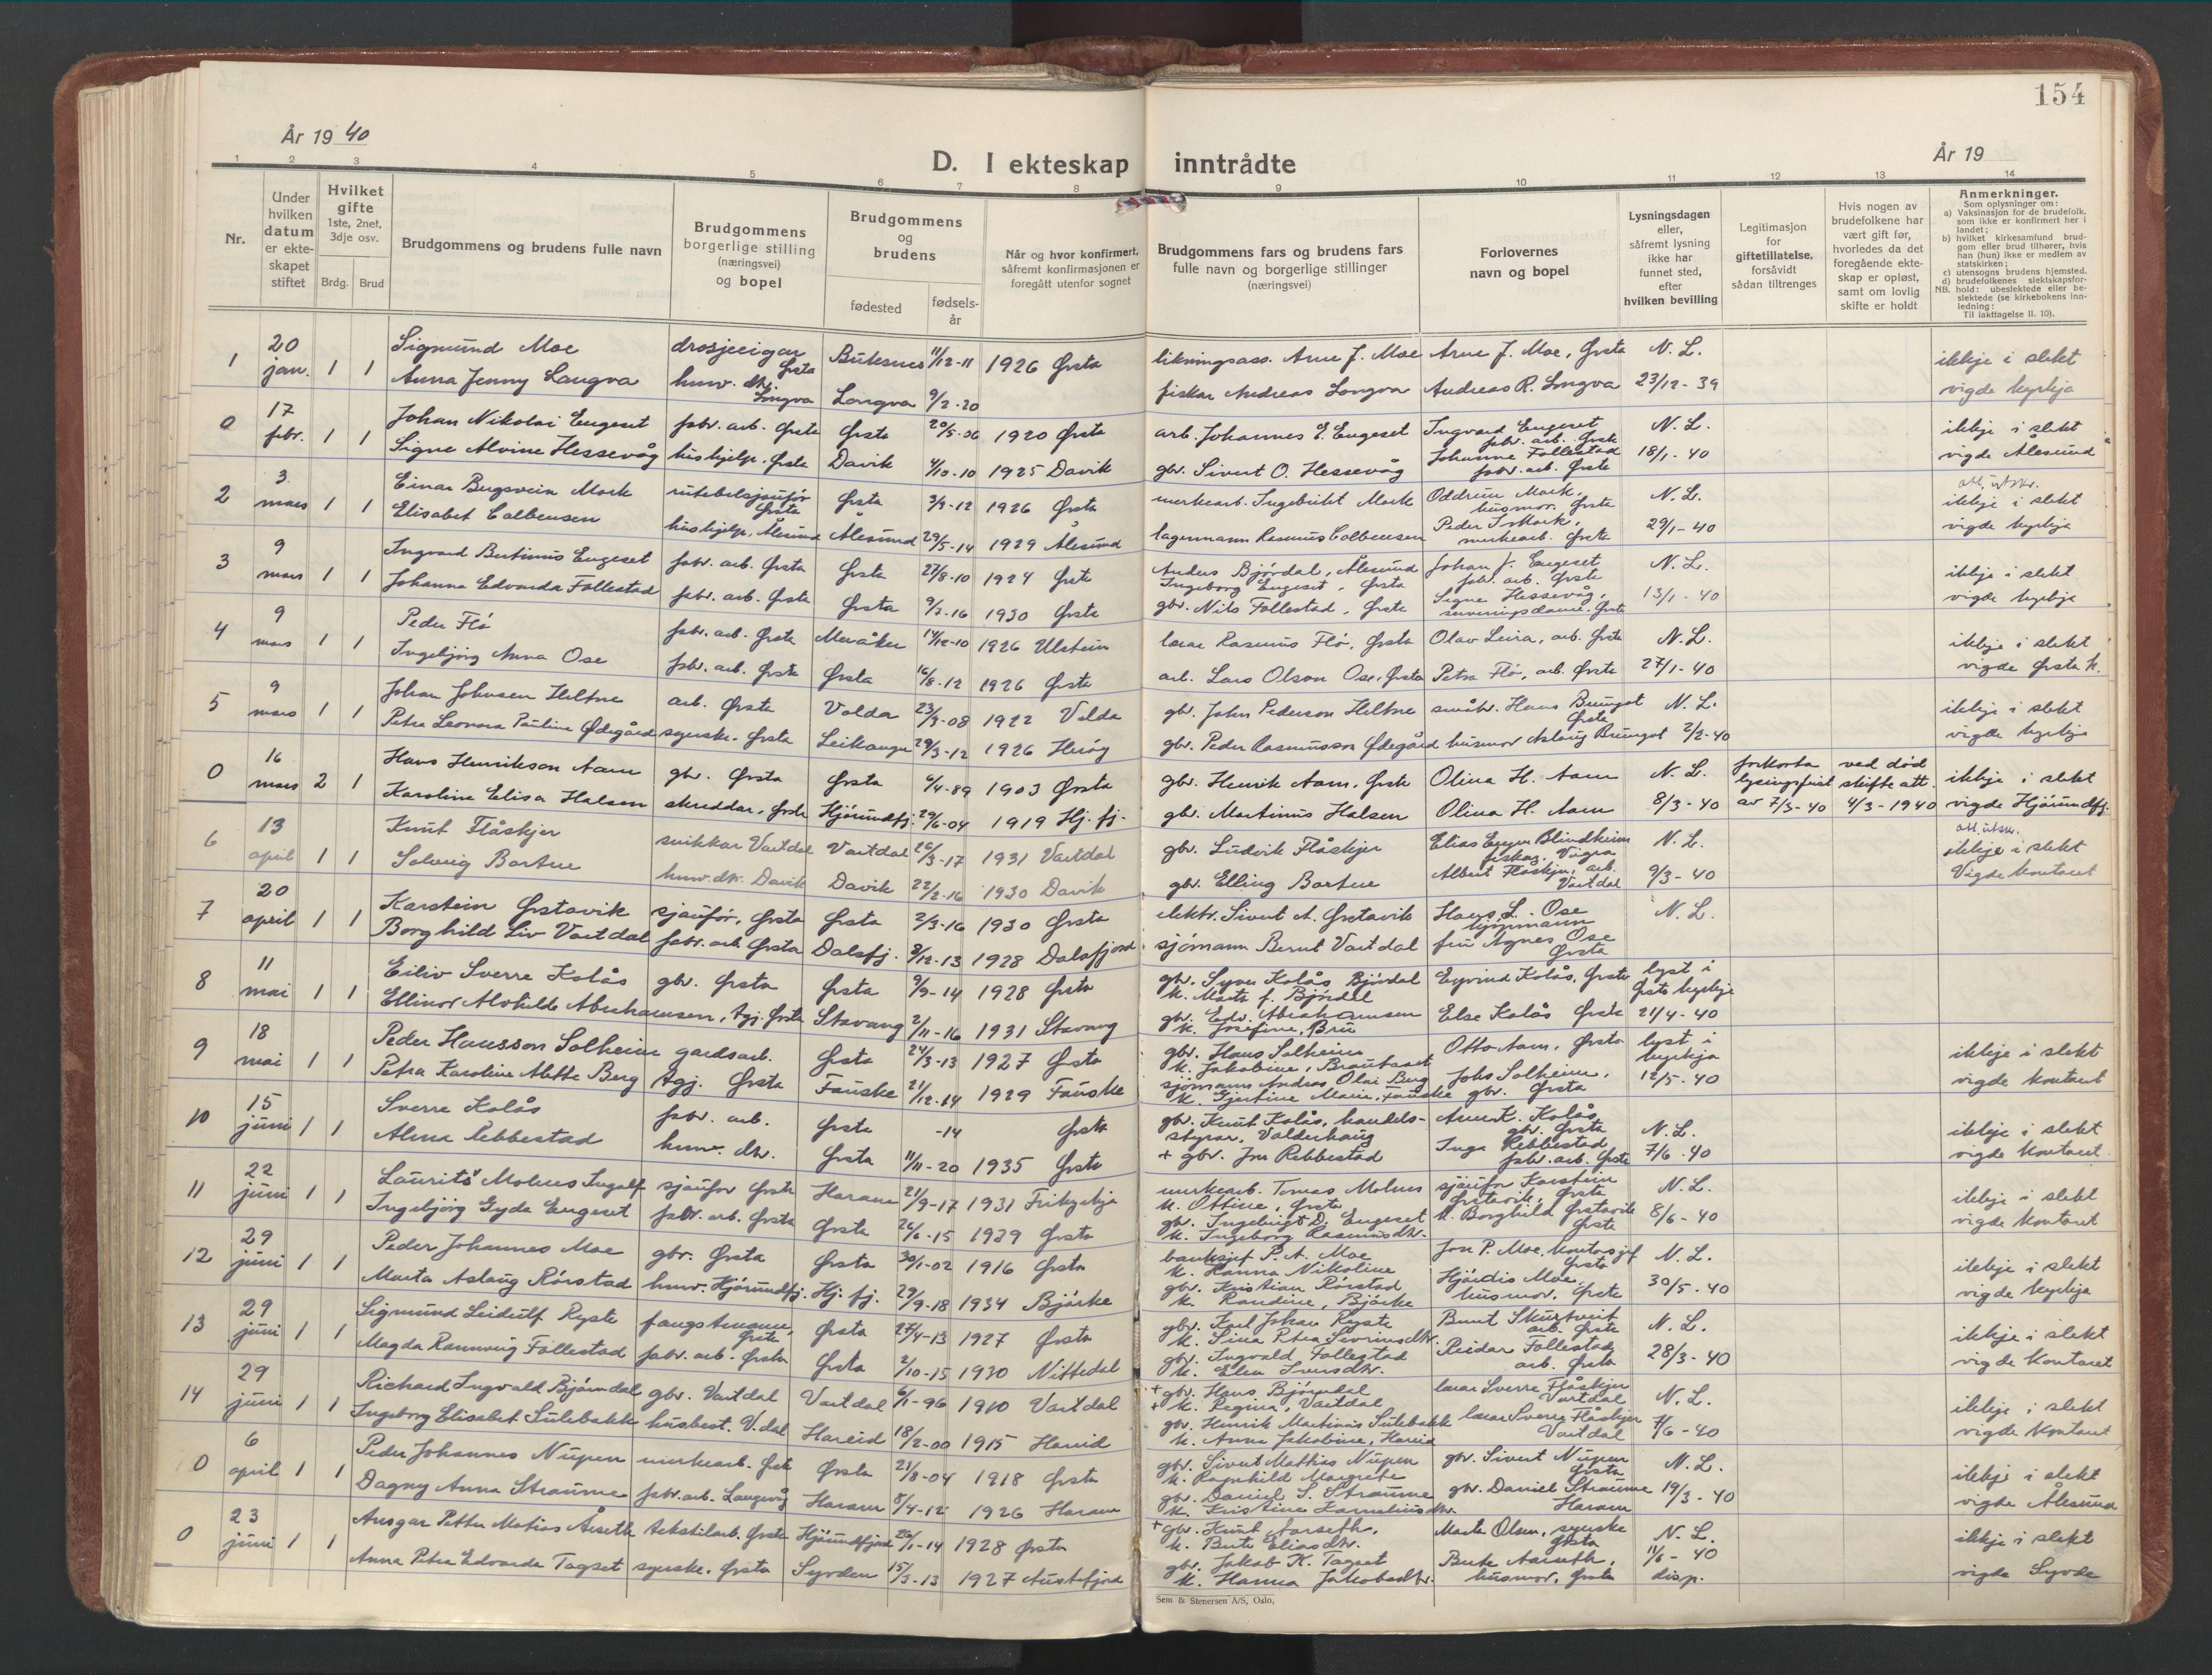 154
År 1940
D. I ekteskap inntrådte
År 19
1 2 3 4 5 6 7 8 9 10 11 12 13 14
Nr.
Under hvilken datum er ekteskapet stiftet
Hvilket gifte 1ste, 2net, 3dje osv.
Brdg. Brud
Brudgommens og brudens fulle navn
Brudgommens borgerlige stilling (næringsvei) og bopel
Brudgommens og brudens
fødested fødsels-år
Når og hvor konfirmert, såfremt konfirmasjonen er foregått utenfor sognet
Brudgommens fars og brudens fars fulle navn og borgerlige stillinger (næringsvei)
Forlovernes navn og bopel
Lysningsdagen eller, såfremt lysning ikke har funnet sted, efter hvilken bevilling
Legitimasjon for giftetillatelse, forsåvidt sådan tiltrenges
Hvis nogen av brudefolkene har vært gift før, hvorledes da det foregående ekteskap er opløst, samt om lovlig skifte er holdt
Anmerkninger.
Som oplysninger om:
a) Vaksinasjon for de brudefolk, som ikke er konfirmert her i landet;
b) hvilket kirkesamfund brudgom eller brud tilhører, hvis han (hun) ikke er medlem av statskirken;
c) utensogns brudens hjemsted.
d) brudefolkenes slektskapsforhold: ubeslektede eller beslektede (se kirkebokens innledning:
NB.
Til iakttagelse II. 10).
1 20 jan. 1 1 Sigmund Moe drosjeeigar Ørsta Buksnes 11/12-11 1926 Ørsta likningsass. Arne J. Moe Arne J. Moe, Ørsta N. L. ikkje i slekt
Anna Jenny Longva hmv. dtr. Longva Longva 9/2-20 fiskar Andreas Longva Andreas R. Longva 23/12-39 vigde kyrkja
0 17 febr. 1 1 Johan Nikolai Engeset fabr. arb. Ørsta Ørsta 20/5-06 1920 Ørsta arb. Johannes E. Engeset Ingvard Engeset fabr. arb. Ørsta N. L. ikkje i slekt
Signe Alvine Hessevåg hushjelp. Ørsta Davik 4/10-10 1925 Davik gbr. Sivert O. Hessevåg Johanne Follestad fabr. arb. Ørsta 18/1-40 vigde Ålesund
att. utskr.
2 3 mars 1 1 Einar Bugsvein Mork rutebilsjåfør Ørsta Ørsta 3/3-12 1926 Ørsta merkearb. Ingebrikt Mork Oddrun Mork, husmor. Ørsta N. L. ikkje i slekt
Elisabet Colbensen hushjelp, Ålesund Ålesund 29/5-14 1929 Ålesund lagermann Rasmus Colbensen Peder I. Mork, merkearb. Ørsta 29/1-40 vigde kyrkja
3 9 mars 1 1 Ingvard Bertinus Engeset fabr. arb. Ørsta Ørsta 27/8-10 1924 Ørsta Anders Bjørdal, Ålesund Ingeborg Engeset, Ørsta Johan J. Engeset fabr. arb. Ørsta N. L. ikkje i slekt
Johanna Edvarda Follestad fabr. arb. Ørsta Ørsta 9/7-16 1930 Ørsta gbr. Nils Follestad, Ørsta Signe Hessevåg, serveringsdame. Ørsta 13/1-40 vigde kyrkja
4 9 mars 1 1 Peder Flø fabr. arb. Ørsta Meråker 14/12-10 1926 Ulstein lærar Rasmus Flø, Ørsta Olav Leira, arb. Ørsta N. L. ikkje i slekt
Ingebjørg Anna Ose fabr. arb. Ørsta Ørsta 16/8-12 1926 Ørsta arb. Lars Olson Ose, Ørsta Petra Flø, arb. Ørsta 27/1-40 vigde Ørsta k.
5 9 mars 1 1 Johan Johnsen Heltne arb. Ørsta Volda 23/3-08 1922 Volda gbr. John Pederson Heltne småbr. Hans Brungot Ørsta N. L. ikkje i slekt
Petra Leonora Pauline Ødegård syerske. Ørsta Leikanger 29/3-12 1926 Herøy gbr. Peder Rasmusson Ødegård husmor Aslaug Brungot 2/2-40 vigde kyrkja
0 16 mars 2 1 Hans Henrikson Aam gbr. Ørsta Ørsta 6/4-89 1903 Ørsta gbr. Henrik Aam, Ørsta Olina H. Aam N. L. forkorta lysingsfrist ved død skifte att. ikkje i slekt
Karoline Elisa Halsen skreddar, Ørsta Hjørundfj. 29/6-04 1919 Hj. fj. gbr. Martinus Halsen Olina H. Aam 8/3-40 av 7/3-40 4/3-1940 vigde Hjørundfj.
att. utskr.
6 13 april 1 1 Knut Flåskjer snikkar Vartdal Vartdal 26/3-17 1931 Vartdal gbr. Ludvik Flåskjer Elias Blindheim fiskar, Vigra N. L. ikkje i slekt
Solveig Bortne hmv. dtr. Davik Davik 22/2-16 1930 Davik gbr. Elling Bortne Albert Flåskjer, arb. Vartdal 9/3-40 Vigde kontoret
7 20 april 1 1 Karstein Ørstavik sjåufør, Ørsta Ørsta 2/3-16 1930 Ørsta elektr. Sivert A. Ørstavik Hans L. Ose N. L.
Borghild Liv Vartdal fabr. arb. Ørsta Dalsfj. 3/12-13 1928 Dalsfjord sjømann Bernt Vartdal fru Agnes Ose Ørsta
8 11 mai 1 1 Eiliv Sverre Kolås gbr. Ørsta Ørsta 9/9-14 1928 Ørsta gbr. Syver Kolås Bjørdal k. Marta f. Bjørdal Eyvind Kolås, Ørsta lyst i Ørsta kyrkje
Ellinor Alvhilde Abrahamsen, tgj. Ørsta Stavang 2/11-16 1931 Stavang gbr. Edv. Abrahamsen k. Josefine, Bru Else Kolås Ørsta 21/4-40
9 18 mai 1 1 Peder Hansson Solheim gardsarb. Ørsta 24/3-13 1927 Ørsta gbr. Hans Solheim k. Jakobine, Brautaset Otto Aam, Ørsta lyst i kyrkja ikkje i slekt
Petra Karoline Alette Berg tgj. Ørsta Fauske 21/12-14 1929 Fauske sjømann Andreas Olai Berg k. Gjertine Marie, Fauske Johs Solheim, gbr. Ørsta 12/5-40 vigde kontoret
10 15 juni 1 1 Sverre Kolås fabr. arb. Ørsta -14 Ørsta gbr. Knut Kolås, handelsstyrar, Valderhaug Anne K. Kolås gbr. Ørsta N. L. ikkje i slekt
Alma Rebbestad hmv. dtr. Ørsta 11/11-20 1935 Ørsta + gbr. Jon Rebbestad Inga Rebbestad fabr. arb. Ørsta 7/6-40 vigde kontoret
11 22 juni 1 1 Laurits Molnes Ingolf sjåufør Ørsta Haram 21/9-17 1931 Frikyrkja merkearb. Tomas Molnes k. Ottine, Ørsta sjåufør Karstein Ørstavik, Ørsta N. L. ikkje i slekt
Ingebjørg Gyda Engeset fabr. arb. Ørsta Ørsta 26/6-15 1929 Ørsta gbr. Ingebrigt D. Engeset k. Ingeborg Rasmusdtr. k. Borghild Ørstavik Ørsta 8/6-40 vigde kontoret
12 29 juni 1 1 Peder Johannes Moe gbr. Ørsta Ørsta 30/1-02 1916 Ørsta banksjef P. A. Moe k. Hanna Nikoline Jon P. Moe, kontorsjef Ørsta N. L. ikkje i slekt
Marta Aslaug Rørstad hmv. Hjørundfj. Hj. fj. 29/9-18 1934 Bjørke gbr. Kristian Rørstad k. Randine, Bjørke Hjørdis Moe, husmor, Ørsta 30/5-40 vigde kyrkja
13 29 juni 1 1 Sigmund Leidulf Ryste fangstmann, Ørsta Ørsta 27/4-13 1927 Ørsta gbr. Karl Johan Ryste k. Sina Petra Severinsdtr. Bernt Skurtveit arb. Ørsta N. L. ikkje i slekt
Magda Rannveig Follestad fabr. arb. Ørsta Ørsta 2/10-15 1930 Nittedal gbr. Ingvald Follestad k. Elen Iversdtr. Reidar Follestad arb. Ørsta 28/3-40 vigde kontoret
14 29 juni 1 1 Richard Ingvald Bjørndal gbr. Vartdal Vartdal 6/1-96 1910 Vartdal + gbr. Hans Bjørndal + k. Regina, Vartdal lærar Sverre Flåskjer Vartdal N. L. ikkje i slekt
Ingeborg Elisabet Sulebakk husbest. V.dal Hareid 18/2-00 1915 Hareid gbr. Henrik Martinus Sulebakk k. Anna Jakobine, Hareid lærar Sverre Flåskjer Vartdal 7/6-40 vigde kontoret
0 6 april 1 1 Peder Johannes Nupen merkearb. Ørsta Ørsta 21/8-04 1918 Ørsta gbr. Sivert Mathias Nupen k. Ragnhild Margrete gbr. Sivert Nupen Ørsta N. L. ikkje i slekt
Dagny Anna Straume fabr. arb. Langevåg Haram 8/4-12 1926 Haram gbr. Daniel S. Straume k. Kristine Korneliusdtr. gbr. Daniel Straume Haram 19/3-40 vigde Ålesund
0 23 juni 1 1 Ansgar Petter Matias Årseth tekstilarb. Ørsta Hjørundfjord 26/1-14 1928 Ørsta + gbr. Knut Aarseth, k. Berte Eliasdtr. Marta Olsen, syerske Ørsta N. L. ikkje i slekt
Anna Petra Edvarda Tagset syerske. Ørsta Syvden 15/3-13 1927 Austefjord gbr. Jakob K. Tagset k. Hanna Jakobsdtr. Berte Aarseth, husmor, Ørsta 11/6-40 disp. vigde Syvde
Sem & Stenersen A/S, Oslo,